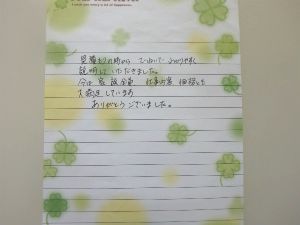 見積もりの時から ていねいで わかりやすく
説明して いただきました。
今は 家族全員 仕事内容 価格とも
大満足しています
ありがとうございました。